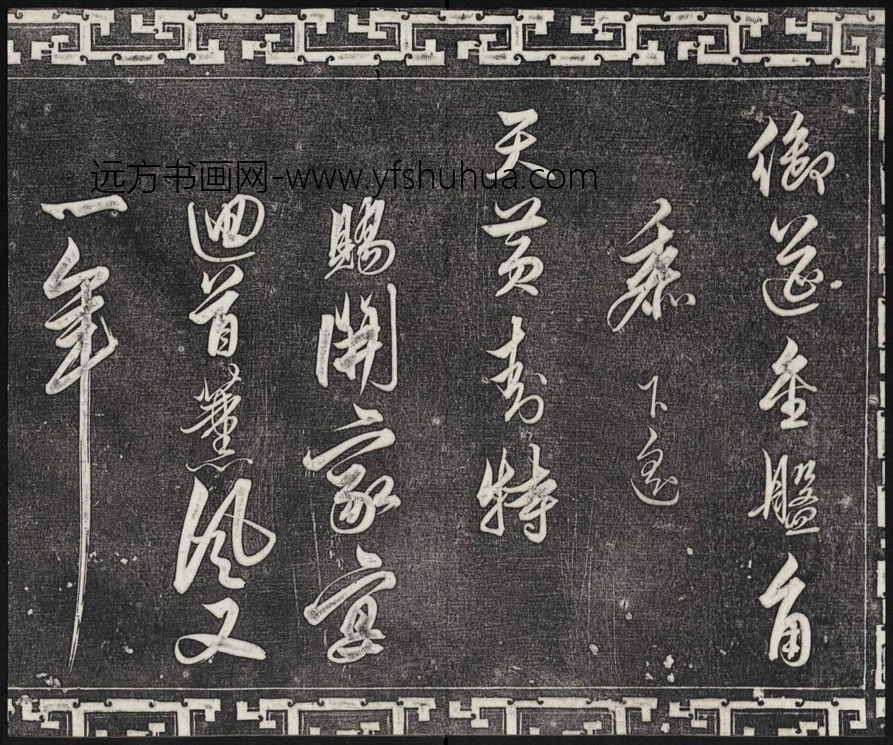 御筵金盤角
黍下遙
天黃封特
賜開家宴
迴首薰風又
一年
远方书画网-www.yfshuhua.com